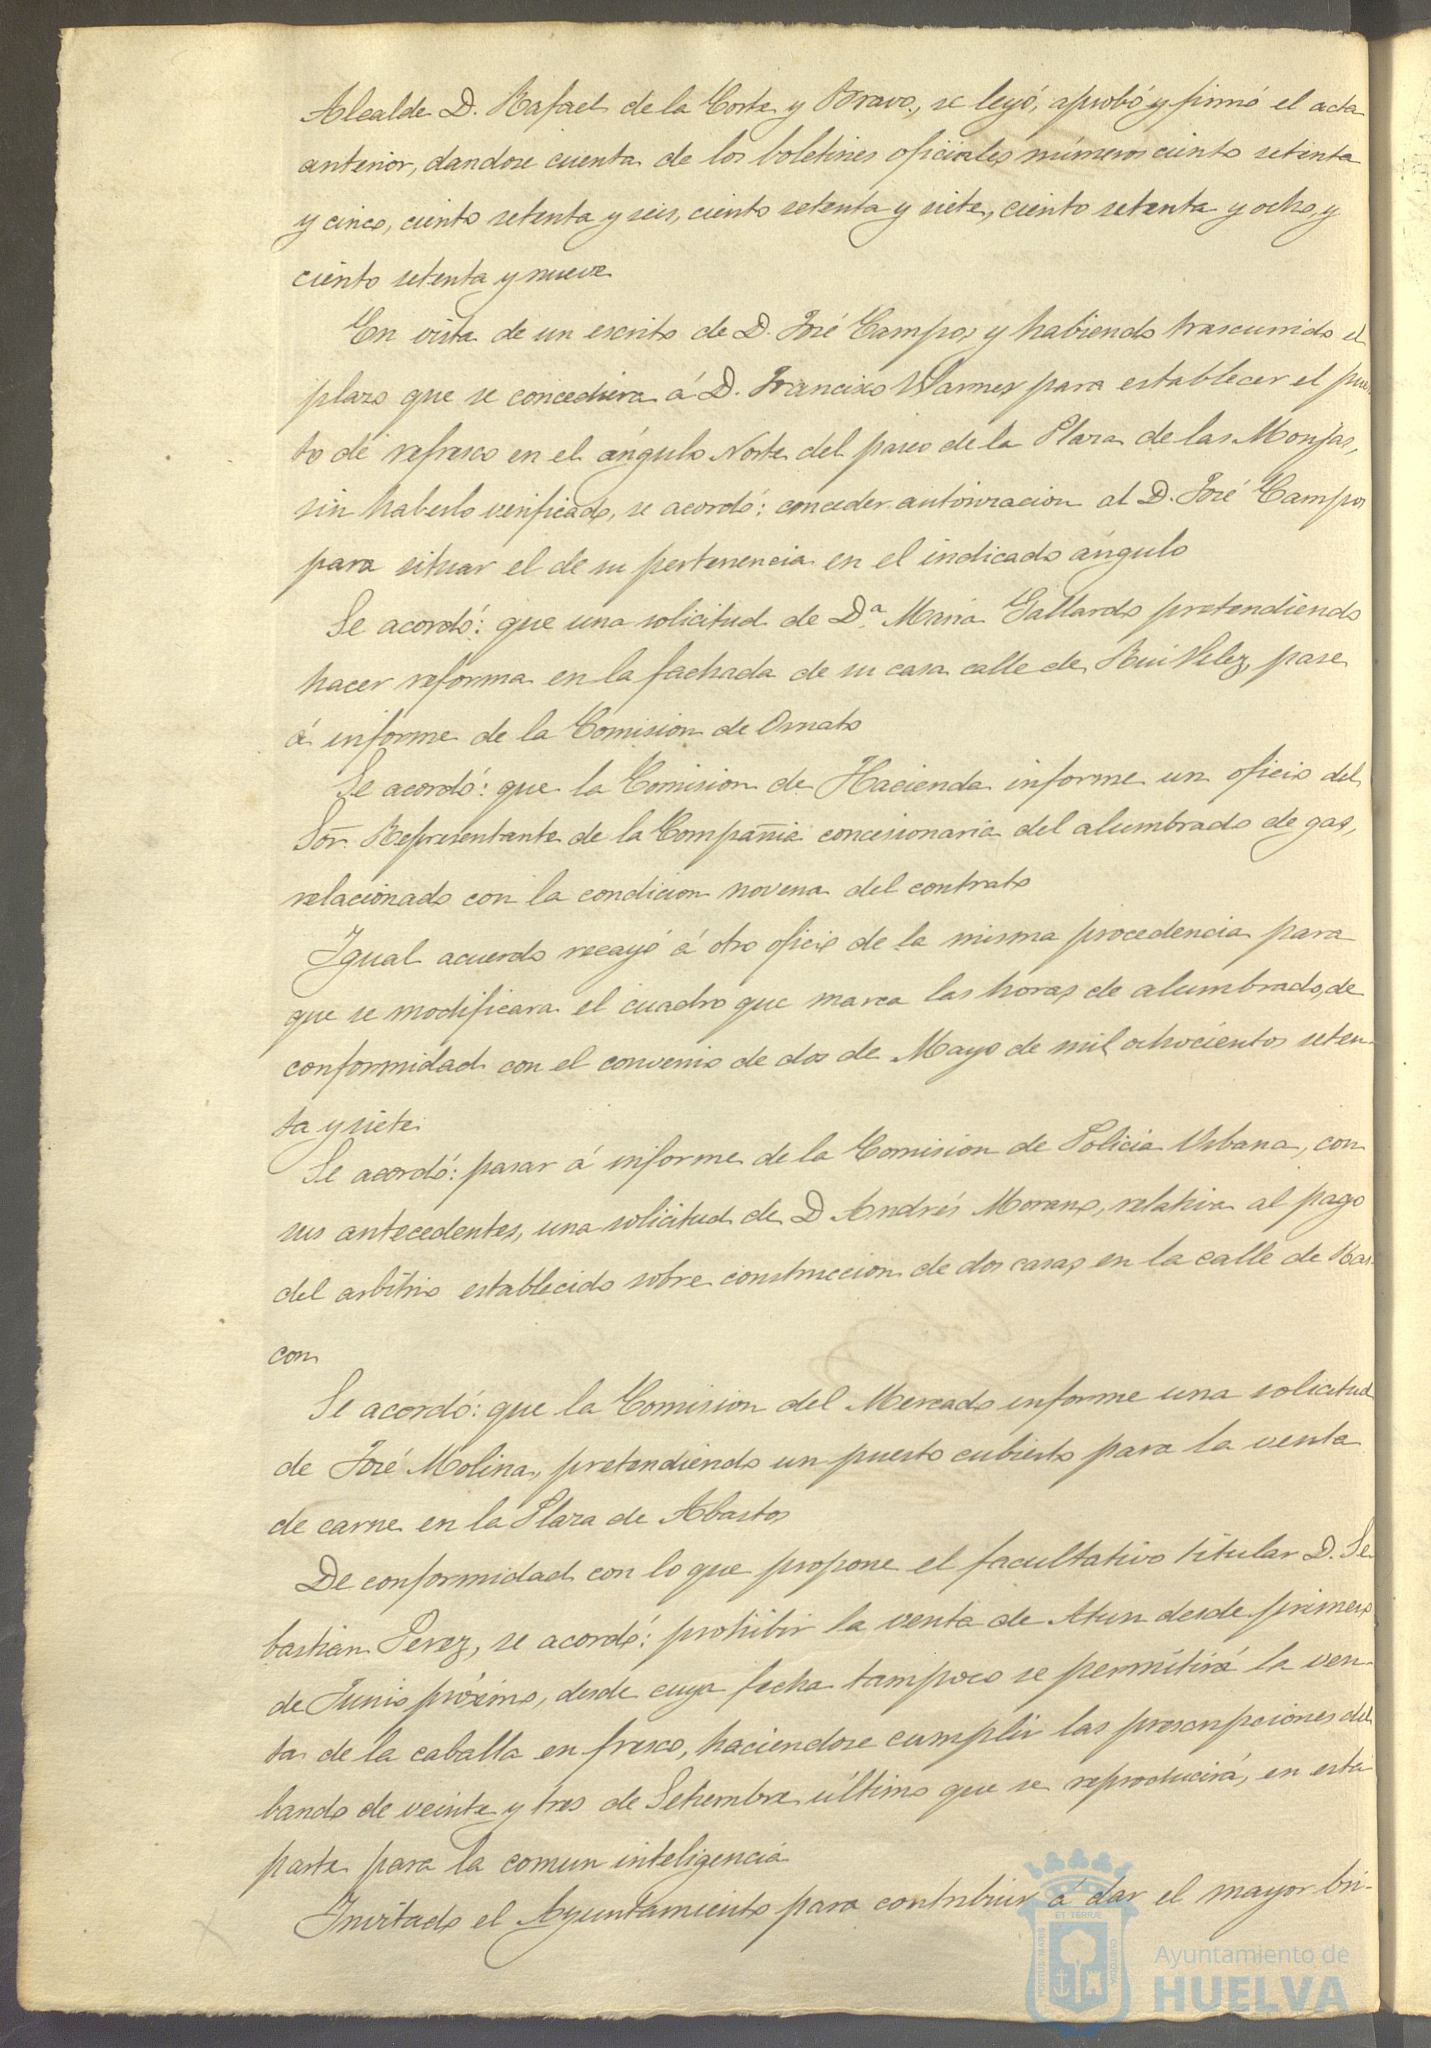 Alcalde D. Rafael de la Corte y Bravo, se leyó, aprobó y firmó el acta
anterior, dandose cuenta de los boletines oficiales números ciento setenta
y cinco, ciento setenta y seis, ciento setenta y siete, ciento setenta y ocho, y
ciento setenta y nueve
En vista de un escrito de D. José Campos y habiendo trascurrido el
plazo que se concediera á D. Francisco Warner para establecer el pues
to de refresco en el ángulo Norte del paseo de la Plaza de las Monjas,
sin haberlo verificado, se acordó: conceder autorizacion al D. José Campos
para situar el de su pertenencia en el indicado ángulo
Se acordó: que una solicitud de D.ª Maria Gallardo pretendiendo
hacer reforma en la fachada de su casa calle de Rui Velez, pase
á informe de la Comision de Ornato
Se acordó: que la Comision de Hacienda informe un oficio del
Sor. Representante de la Compañia concesionaria del alumbrado de gas,
relacionado con la condicion novena del contrato
Igual acuerdo recayó á otro oficio de la misma procedencia para
que se modificara el cuadro que marca las horas de alumbrado, de
conformidad con el convenio de dos de Mayo de mil ochocientos seten-
ta y siete.
Se acordó: pasar á informe de la Comision de Policia Urbana, con
sus antecedentes, una solicitud de D Andrés Moreno, relativa al pago
del arbitrio establecido sobre construccion de dos casas en la calle de Ras
con
Se acordó: que la Comision del Mercado informe una solicitud
de José Molina, pretendiendo un puesto cubierto para la venta
de carne en la Plaza de Abastos
De conformidad con lo que propone el facultativo titular D. Se
bastian Perez, se acordó: prohibir la venta de Atun desde primero
de Junio próximo, desde cuya fecha tampoco se permitirá la ven-
ta de la caballa en fresco, haciendose cumplir las prescripciones del
bando de veinte y tres de Setiembre último que se reproducirá, en esta
parte para la comun inteligencia
Invitado el Ayuntamiento para contribuir á dar el mayor bri-
Ayuntamiento de
HUELVA